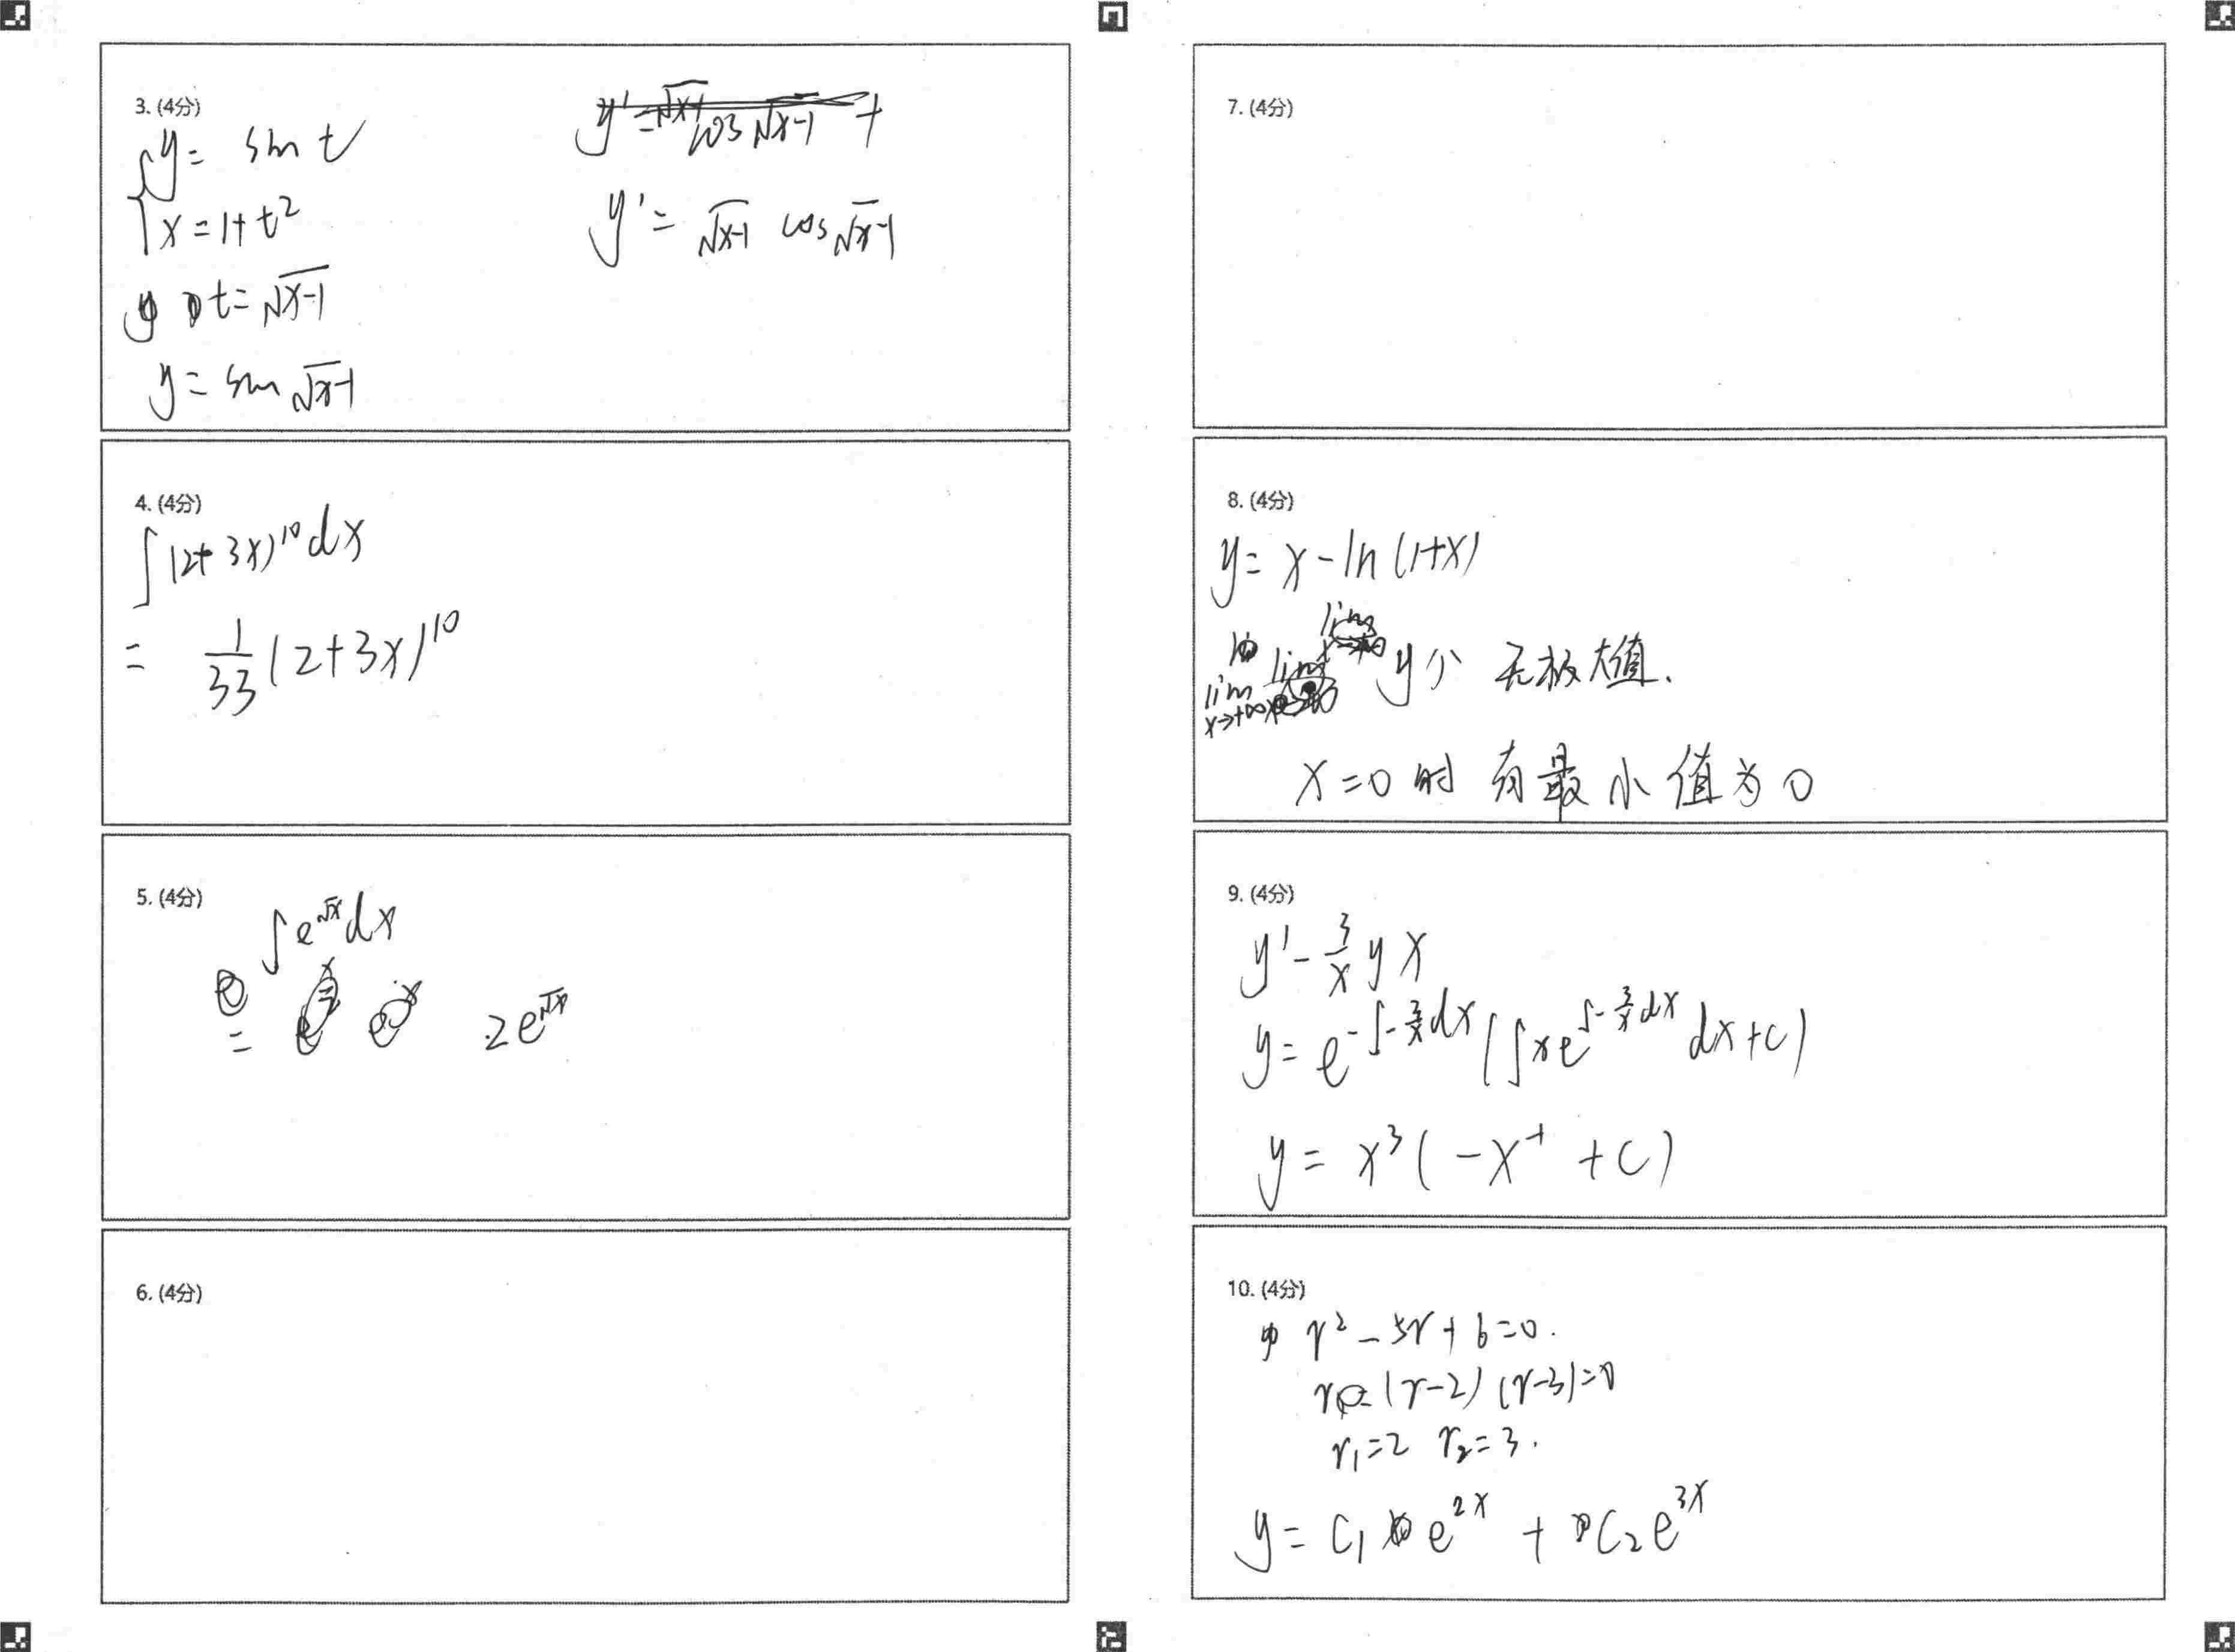 3. (4分)
y = sin t
x = 1+t²
t = √x-1
y = sin √x-1
y' = √x-1 cos √x-1 +
y' = √x-1 cos √x-1
4. (4分)
∫(2+3x)¹⁰dx
= 1/33 (2+3x)¹⁰
5. (4分)
∫e^√x dx
= 2e^√x
6. (4分)
7. (4分)
8. (4分)
y = x - ln (1+x)
lim x→+∞ y个 无极大值.
x=0 时 有最小值为0
9. (4分)
y' - 3/x y x
y = e^-∫-3/x dx (∫xe^∫-3/x dx dx+c)
y = x³ (-x⁻¹ + c)
10. (4分)
r² - 5r + 6 = 0.
(r-2) (r-3)=0
r₁=2 r₂=3.
y = C₁ e^2x + C₂ e^3x